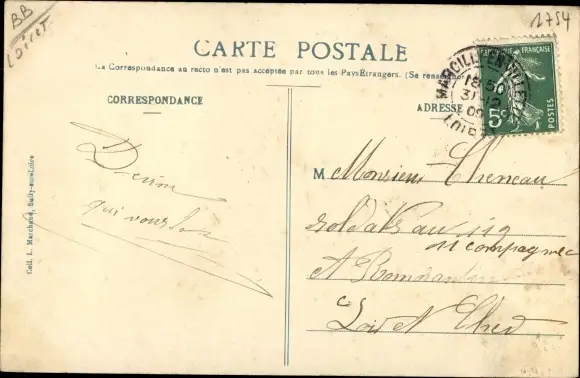 BB
Loiret
1754
CARTE POSTALE
La Correspondance au recto n'est pas acceptée par tous les Pays Étrangers. (Se renseigner
CORRESPONDANCE
ADRESSE
FRANÇAISE
5
POSTES
MARCILLY EN VILLETTE
18 50
31 12
09
LOIRET
M Monsieur Cheneau
soldat au 113
11 compagnie
A Romorantin
Loir et Cher
qui vous
Coll. L. Marchand, Sully-sur-Loire